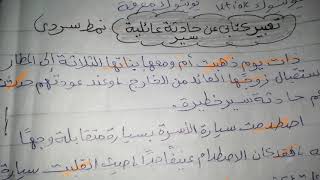 تعبير كتابي عن حادثة عائلية نمط سردي
سير
ذات يوم ذهبت أم ومعها بناتها الثلاثة إلى المطار
لاستقبال زوجها العائد من الخارج وعند عودتهم
حادثة سير خطيرة.
اصطدمت سيارة الأسرة بسيارة متقابلة وجها
كان الاصطدام عنيفا جدا انقلبت سيارة